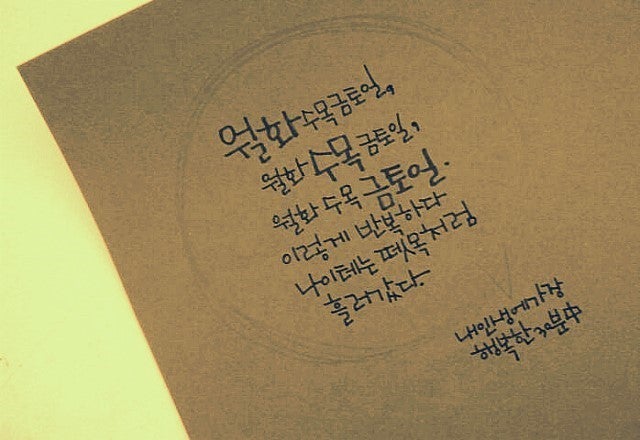 월화수목금토일,
월화 수목 금토일,
월화 수목 금토일.
이렇게 반복하다
나이테는 뗏목처럼
흘러갔다.
내 인생에 가장
행복한 30분 中